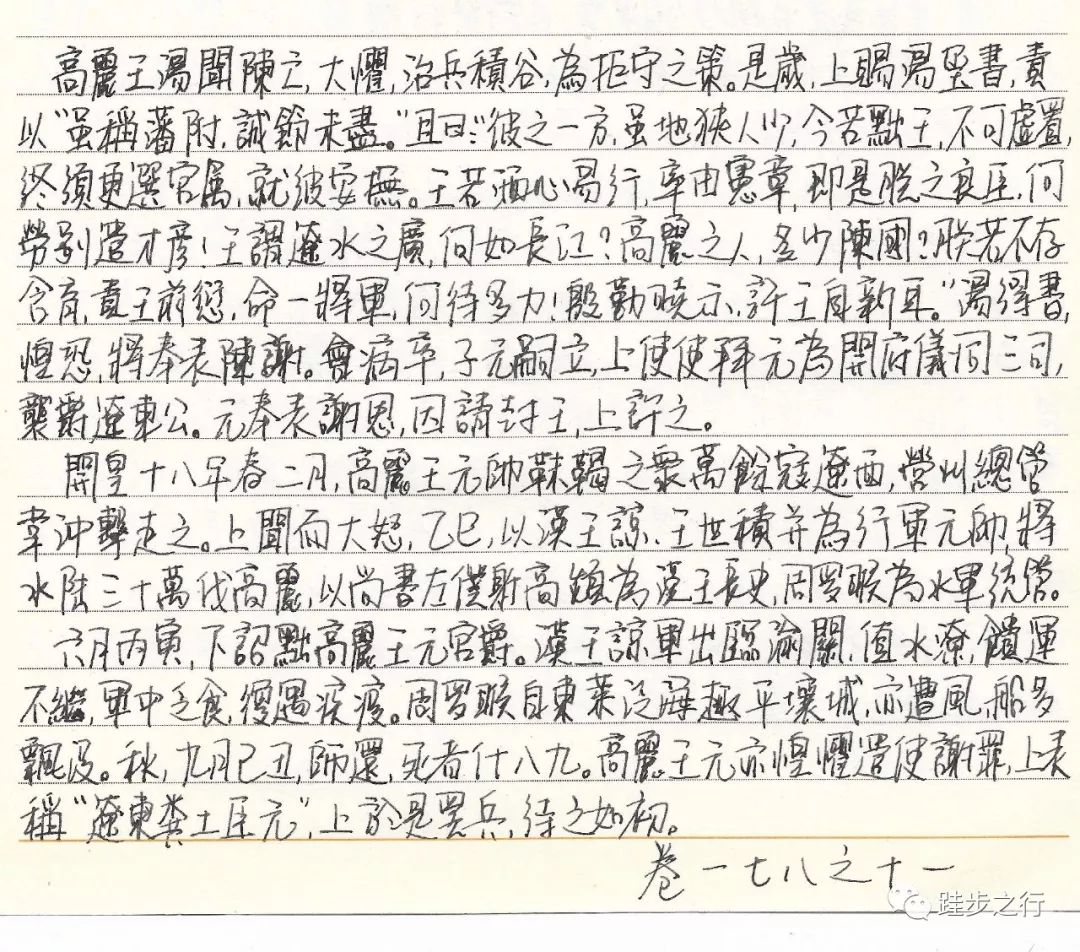 高麗王湯聞陳亡,大懼,治兵積谷,為拒守之策。是歲,上賜湯璽書,責
以“虽稱藩附,誠節未盡。”且曰:“彼之一方,虽地狹人少,今若黜王,不可虛置,
終須更選官屬,就彼安撫。王若洒心易行,率由憲章,即是朕之良臣,何
勞別遣才彥!王謂遼水之廣,何如長江?高麗之人,多少陳國?朕若不存
含育,責王前愆,命一將軍,何待多力!慇勤曉示,許王自新耳。”湯得書,
惶恐,將奉表陳謝。會病卒,子元嗣立,上使使拜元為開府儀同三司,
襲爵遼東公。元奉表謝恩,因請封王,上許之。
開皇十八年春二月,高麗王元帥靺鞨之眾萬餘寇遼西,營州總管
韋沖擊走之。上聞而大怒,乙巳,以漢王諒、王世積并為行軍元帥,將
水陸三十萬伐高麗,以尚書左僕射高熲為漢王長史,周羅睺為水軍統管。
六月丙寅,下詔黜高麗王元官爵。漢王諒軍出臨渝關,值水潦,餽運
不繼,軍中乏食,復遇疾疫。周羅睺自東萊泛海趣平壤城,亦遭風,船多
飄沒。秋,九月己丑,師還,死者什八九。高麗王元亦惶懼遣使謝罪,上表
稱“遼東糞土臣元”,上於是罷兵,待之如初。
卷一七八之十一
跬步之行